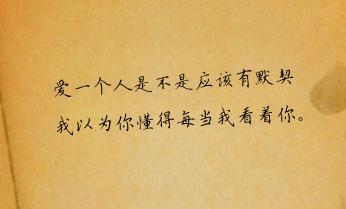 爱一个人是不是应该有默契
我以为你懂得每当我看着你。